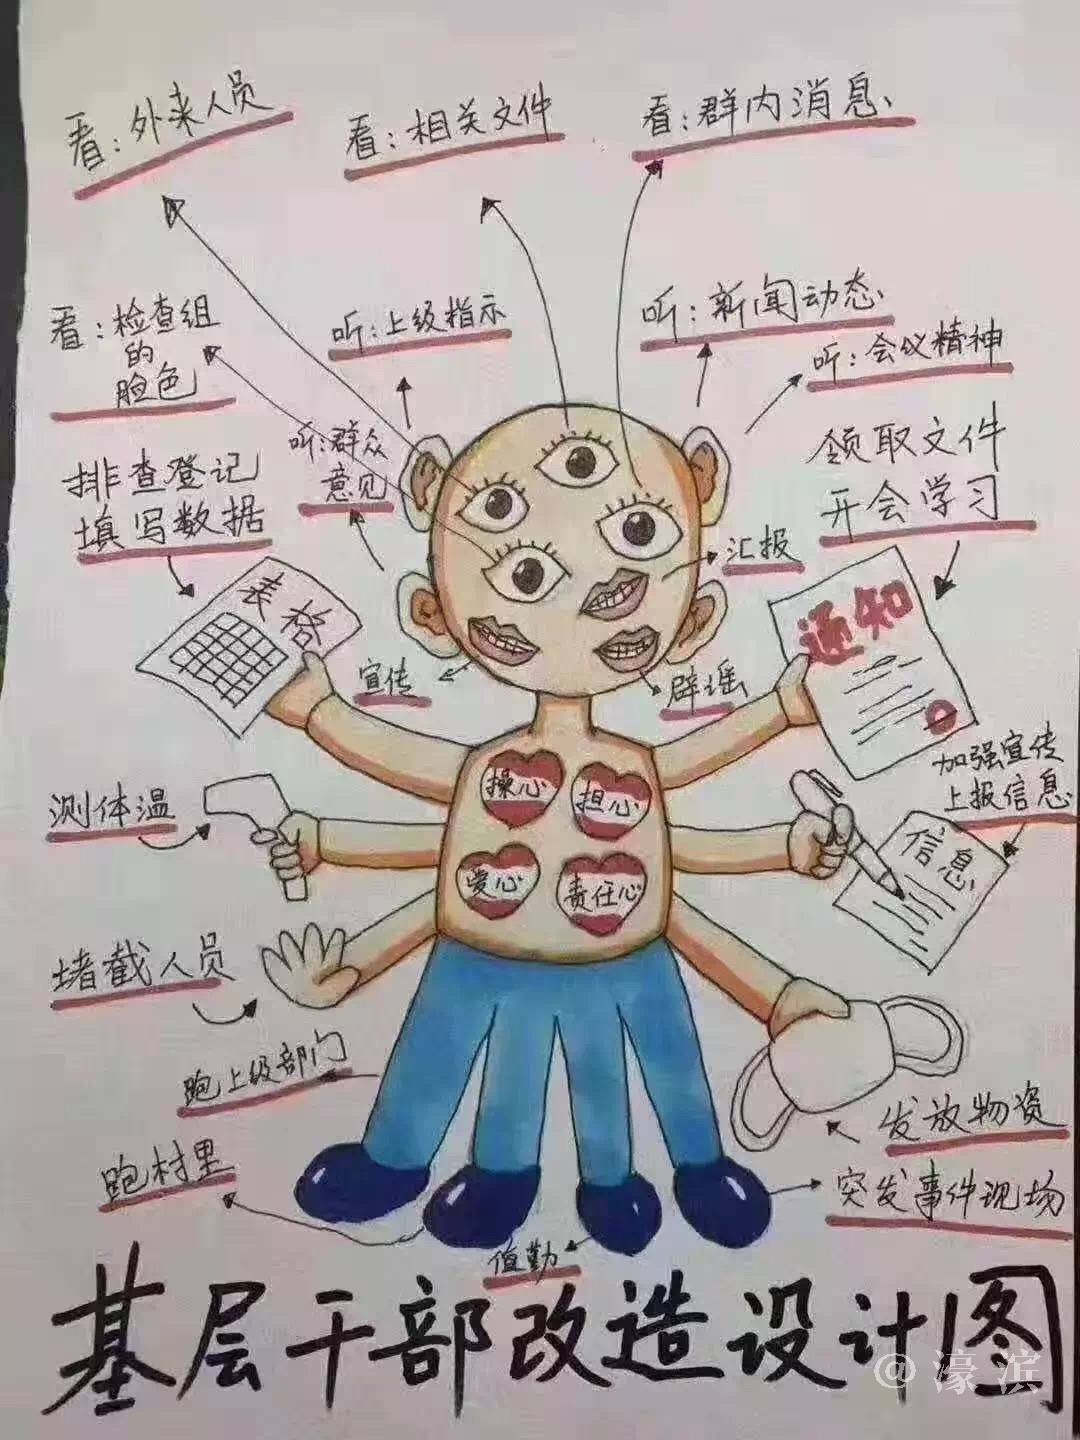 看:外来人员
看:相关文件
看:群内消息
看:检查组
的
脸色
听:上级指示
听:新闻动态
听:会议精神
听:群众
意见
排查登记
填写数据
领取文件
开会学习
汇报
表格
通知
宣传
辟谣
操心
担心
爱心
责任心
加强宣传
上报信息
测体温
信息
堵截人员
跑上级部门
发放物资
跑村里
突发事件现场
值勤
基层干部改造设计图
@濠滨